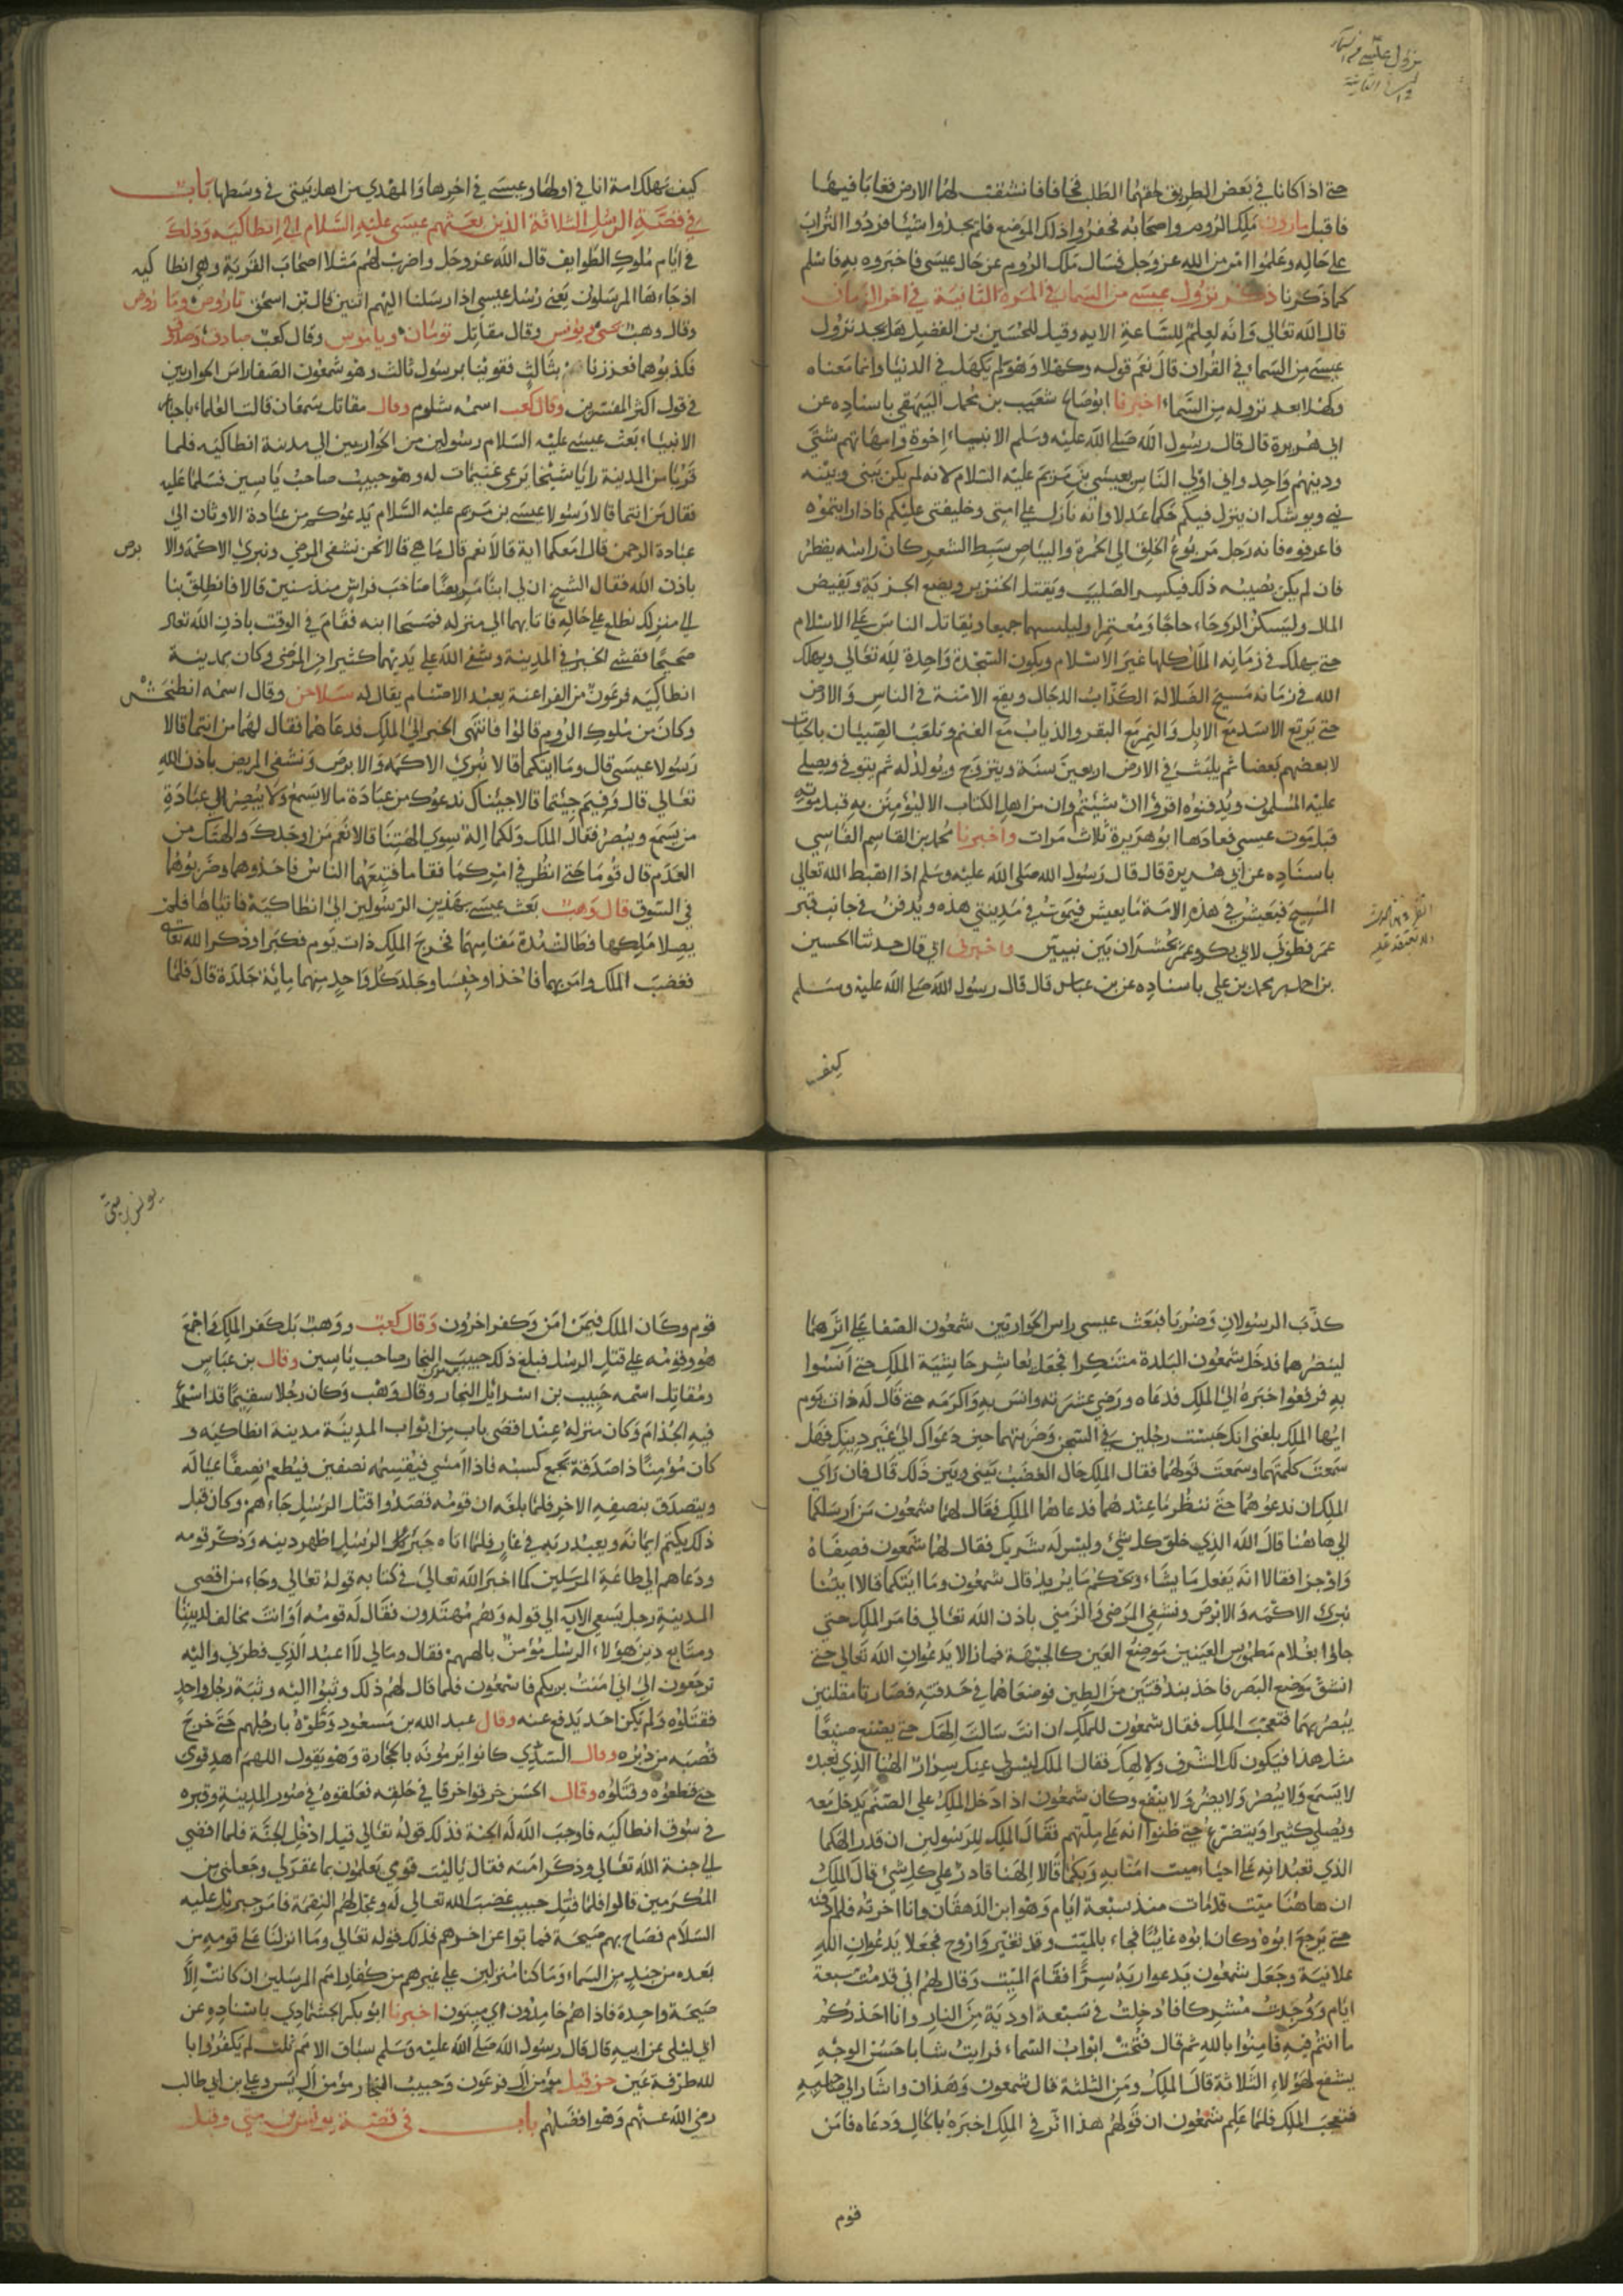 نزول عيسى من السماء
حتى اذا كانا في بعض الطريق لحقهما الطلب فخافا فانشقت لهما الارض فغابا فيها
فاقبل مارون ملك الروم واصحابه فحفروا ذلك الموضع فلم يجدوا شيئا فردوا التراب
على حاله وعلموا انه من الله عز وجل فسال ملك الروم عن حال عيسى فاخبروه به فاسلم
كما ذكرنا ذكر نزول عيسى من السماء في المرة الثانية في اخر الزمان
قال الله تعالى وانه لعلم للساعة الايه وقيل للحسين بن الفضيل هل يجد نزول
عيسى من السماء في القران قال نعم قوله وكهلا وهو لم يكهل في الدنيا وانما معناه
وكهلا بعد نزوله من السماء اخبرنا ابو صالح شعيب بن محمد البيهقي باسناده عن
ابي هريرة قال قال رسول الله صلى الله عليه وسلم الانبياء اخوة وامهاتهم شتى
ودينهم واحد واني اولي الناس بعيسى بن مريم عليه السلام لانه لم يكن بيني وبينه
نبي ويوشك ان ينزل فيكم حكما عدلا وانه نازل على امتي وخليفتي عليكم فاذا رايتموه
فاعرفوه فانه رجل مربوع الخلق الى الحمرة والبياض سبط الشعر كان راسه يقطر
فان لم يكن يصيبه ذلك فيكسر الصليب ويقتل الخنزير ويضع الجزية ويفيض
المال وليسكن الروحاء حاجا ومعتمرا وليلبسهما جميعا ويقاتل الناس على الاسلام
حتى يهلك في زمانه الملل كلها غير الاسلام ويكون السجدة واحدة لله تعالى ويهلك
الله في زمانه مسيح الضلالة الكذاب الدجال ويقع الامنة في الناس والارض
حتى يرتع الاسد مع الابل والنمر مع البقر والذياب مع الغنم وتلعب الصبيان بالحيات
لا بعضهم بعضا ثم يلبث في الارض اربعين سنة ويتزوج ويولد له ثم يتوفى ويصلي
عليه المسلمون ويدفنوه اقروا ان شيئتم وان من اهل الكتاب الا ليؤمنن به قبل موته
قبل موت عيسى فعادها ابو هريرة ثلاث مرات واخبرنا محمد بن القاسم الفارسي
باسناده عن ابي هريرة قال قال رسول الله صلى الله عليه وسلم اذا اهبط الله تعالى
المسيح فيعيش في هذه الامة ما يعيش فيموت في مدينتي هذه ويدفن في جانب قبر
عمر فطوبى لابي بكر وعمر يحشران بين نبيين واخبرني ابي قال حدثنا الحسين
بن احمد بن محمد بن علي باسناده عن بن عباس قال قال رسول الله صلى الله عليه وسلم
كيف
كيف تهلك امة انا في اولها وعيسى في اخرها والمهدي من اهل بيتي في وسطها باب
في قصة الرسل الثلاثة الذين بعثهم عيسى عليه السلام الى انطاكيه وذلك
في ايام ملوك الطوايف قال الله عز وجل واضرب لهم مثلا اصحاب القرية وهي انطاكيه
اذ جاءها المرسلون يعني رسل عيسى اذ ارسلنا اليهم اثنين قال بن اسحق تاروص وماروص
وقال وهب يحيى ويونس وقال مقاتل تومان ويانوس وقال كعب صادق وصدوق
فكذبوهما فعززنا بثالث فقوينا برسول ثالث وهو شمعون الصفا راس الحواريين
في قول اكثر المفسرين وقال كعب اسمه شلوم وقال مقاتل سمعان قالت العلماء باخبار
الانبياء بعث عيسى عليه السلام رسولين من الحواريين الى مدينة انطاكيه فلما
قربا من المدينة رايا شيخا يرعى غنيمات له وهو حبيب صاحب ياسين فسلما عليه
فقال من انتما قالا رسولا عيسى بن مريم عليه السلام يدعوكم من عبادة الاوثان الى
عبادة الرحمن قال امعكما اية قالا نعم قال ما هي قالا نحن نشفي المرضى ونبري الاكمه والابرص
باذن الله فقال الشيخ ان لي ابنا مريضا صاحب فراش منذ سنين قالا فانطلق بنا
الى منزلك نطلع على حاله فاتا بهما الى منزله فمسحا ابنه فقام في الوقت باذن الله تعالى
صحيحا ففشى الخبر في المدينة وشفى الله على يديهما كثيرا من المرضى وكان بمدينة
انطاكيه فرعون من الفراعنة يعبد الاصنام يقال له سلاحن وقال اسمه انطيخش
وكان من ملوك الروم قالوا فانتهى الخبر الى الملك فدعاهما فقال لهما من انتما قالا
رسولا عيسى قال وما ايتكما قالا نبري الاكمه والابرص ونشفي المريض باذن الله
تعالى قال وفيم جيتما قالا جيناك ندعوك من عبادة ما لا يسمع ولا يبصر الى عبادة
من يسمع ويبصر فقال الملك ولكما اله سوى الهتنا قالا نعم من اوجدك والهتك من
العدم قال قوما حتى انظر في امركما فقاما فتبعهما الناس فاخذوهما وضربوهما
في السوق قال وهب بعث عيسى بهذين الرسولين الى انطاكية فاتياها فلم
يصلا ملكها فطالت مدة مقامهما فخرج الملك ذات يوم فكبرا وذكر الله تعالى
فغضب الملك وامر بهما فاخذا وحبسا وجلد كل واحد منهما ماية جلدة قال فلما
كذب الرسولان وضربا فبعث عيسى راس الحواريين شمعون الصفا على اثرهما
لينصرهما فدخل شمعون البلدة متنكرا فجعل يعاشر حاشية الملك حتى آنسوا
به فرفعوا خبره الى الملك فدعاه ورضي عشرته وانس به واكرمه حتى قال له ذات يوم
ايها الملك بلغني انك حبست رجلين في السجن وضربتهما حين دعواك الى غير دينك فهل
سمعت كلمتهما وسمعت قولهما فقال الملك حال الغضب بيني وبين ذلك قال فان راى
الملك ان ندعوهما حتى ننظر ما عندهما فدعاهما الملك فقال لهما شمعون من ارسلكما
الى هاهنا قالا الله الذي خلق كل شئ وليس له شريك فقال لهما شمعون فصفاه
واوجزا فقالا انه يفعل ما يشاء ويحكم ما يريد قال شمعون وما ايتكما قالا ايتنا
نبرئ الاكمه والابرص ونشفي المرضى والزمنى باذن الله تعالى فامر الملك حتى
جاوا بغلام مطموس العينين موضع العين كالجبهة فما زالا يدعوان الله تعالى حتى
انشق موضع البصر فاخذ بندقتين من الطين فوضعاهما في حدقته فصارتا مقلتين
يبصر بهما فتعجب الملك فقال شمعون للملك ان انت سالت الهك حتى يصنع صنيعا
مثل هذا فيكون لك الشرف ولالهك فقال الملك ليس لي عنك سر ان الهنا الذي نعبده
لا يسمع ولا يبصر ولا يضر ولا ينفع وكان شمعون اذا دخل الملك على الصنم يدخل معه
ويصلي كثيرا ويتضرع حتى ظنوا انه على ملتهم فقال الملك للرسولين ان قدر الهكما
الذي تعبدانه على احياء ميت امنا به وبكما قالا الهنا قادر على كل شئ قال الملك
ان هاهنا ميت قد مات منذ سبعة ايام وهو ابن الدهقان وانا اخرته فلم ادفنه
حتى يرجع ابوه وكان ابوه غايبا فجاء بالميت وقد تغير واروح فجعلا يدعوان الله
علانية وجعل شمعون يدعوا ربه سرا فقام الميت وقال لهم اني قد مت سبعة
ايام ووجدت مشركا فادخلت في سبعة اودية من النار وانا احذركم
ما انتم فيه فامنوا بالله ثم قال فتحت ابواب السماء فرايت شابا حسن الوجه
يشفع لهؤلاء الثلاثة قال الملك ومن الثلثة قال شمعون وهذان واشار الى صاحبيه
فتعجب الملك فلما علم شمعون ان قولهم هذا اثر في الملك اخبره بالحال ودعاه فامن
قوم
يونس بن متى
قوم وكان الملك فيمن امن وكفر اخرون وقال كعب ووهب بل كفر الملك واجمع
هو وقومه على قتل الرسل فبلغ ذلك حبيب النجار صاحب ياسين وقال بن عباس
ومقاتل اسمه حبيب بن اسرايل النجار وقال وهب وكان رجلا سقيما قد اسرع
فيه الجذام وكان منزله عند اقصى باب من ابواب المدينة مدينة انطاكيه و
كان مؤمنا ذا صدقة يجمع كسبه فاذا امسى فيقسمه نصفين فيطعم نصفا عياله
ويتصدق بنصفه الاخر فلما بلغه ان قومه قصدوا قتل الرسل جاءهم وكان قبل
ذلك يكتم ايمانه ويعبد ربه في غار فلما اتاه خبر الرسل اظهر دينه وذكر قومه
ودعاهم الى طاعة المرسلين كما اخبر الله تعالى في كتابه قوله تعالى وجاء من اقصى
المدينة رجل يسعى الايه الى قوله وهم مهتدون فقال له قومه اوانت مخالف لديننا
ومتابع دين هؤلاء الرسل مؤمن بالههم فقال ومالي لا اعبد الذي فطرني واليه
ترجعون الى اني امنت بربكم فاسمعون فلما قال لهم ذلك وثبوا اليه وثبة رجل واحد
فقتلوه ولم يكن احد يدفع عنه وقال عبد الله بن مسعود وطئوه بارجلهم حتى خرج
قصبه من دبره وقال السدي كانوا يرمونه بالحجارة وهو يقول اللهم اهد قومي
حتى قطعوه وقتلوه وقال الحسن خرقوا خرقا في حلقه فعلقوه في سور المدينة وقبره
في سوق انطاكيه فاوجب الله له الجنة فذلك قوله تعالى قيل ادخل الجنة فلما افضى
الى جنة الله تعالى وذكر امته فقال ياليت قومي يعلمون بما غفر لي وجعلني من
المكرمين قالوا فلما قتل حبيب غضب الله تعالى له وعجل لهم النقمة فامر جبريل عليه
السلام فصاح بهم صيحة فماتوا عن اخرهم فذلك قوله تعالى وما انزلنا على قومه من
بعده من جند من السماء وما كنا منزلين على غيرهم من كفار امم المرسلين ان كانت الا
صيحة واحدة فاذا هم خامدون اي ميتون اخبرنا ابو بكر الجشادي باسناده عن
ابي ليلى عن ابيه قال قال رسول الله صلى الله عليه وسلم سباق الامم ثلث لم يكفروا با
لله طرفة عين حزقيل مؤمن ال فرعون وحبيب النجار مؤمن ال يس وعلي بن ابي طالب
رضي الله عنهم وهو افضلهم باب في قصة يونس بن متى وقيل